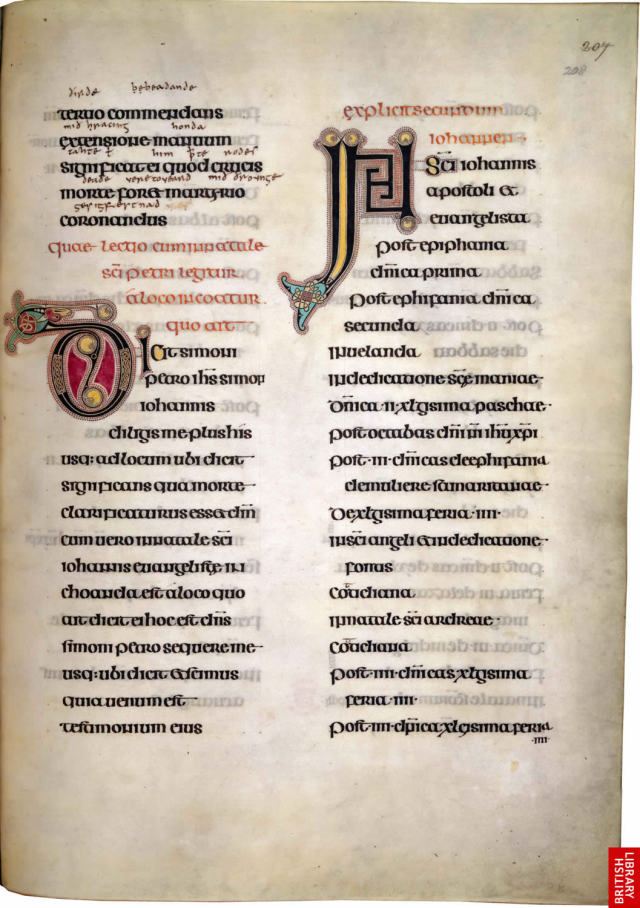 207
208
tertio commendans
extensione manuum
significat ei quod crucis
morte foret martyrio
coronandus
quae lectio cum in natale
sc̄i petri legitur
a loco incoatur
quo ait
Dicit simoni
petro ih̅s simon
iohannis
diligis me plus his
usq: ad locum ubi dicit
significans qua morte
clarificaturus esset d̄m
cum uero in natale sc̄i
iohannis euangelistę in
choanda est a loco quo
ait dicit ei hoc est d̄ns
simoni petro sequere me
usq: ubi dicit et scimus
quia uerum est
testimonium eius
explicit secundum
iohannen
IN Sc̄i iohannis
apostoli et
euangelista
post epiphania
dm̄ica prima
post ephifania dm̄ica
secunda
in uelanda
in dedicatione sc̄ę mariae
Dn̄ica ·ii· xlgisima paschae
post octabas dm̄i n̄i ih̄u xp̄i
post ·iii· dm̄icas de ephifania
de muliere samaritanae
De xlgsima feria ·iiii·
In sc̄i angeli et in dedicatione
fontis
Cotidiana
In natale sc̄i andreae
Cotidiana
post ·iiii· dm̄icas xlgisima
feria ·iiii·
post ·iiii· dm̄ica xlgisima feria
·iiii·
BRITISH
LIBRARY